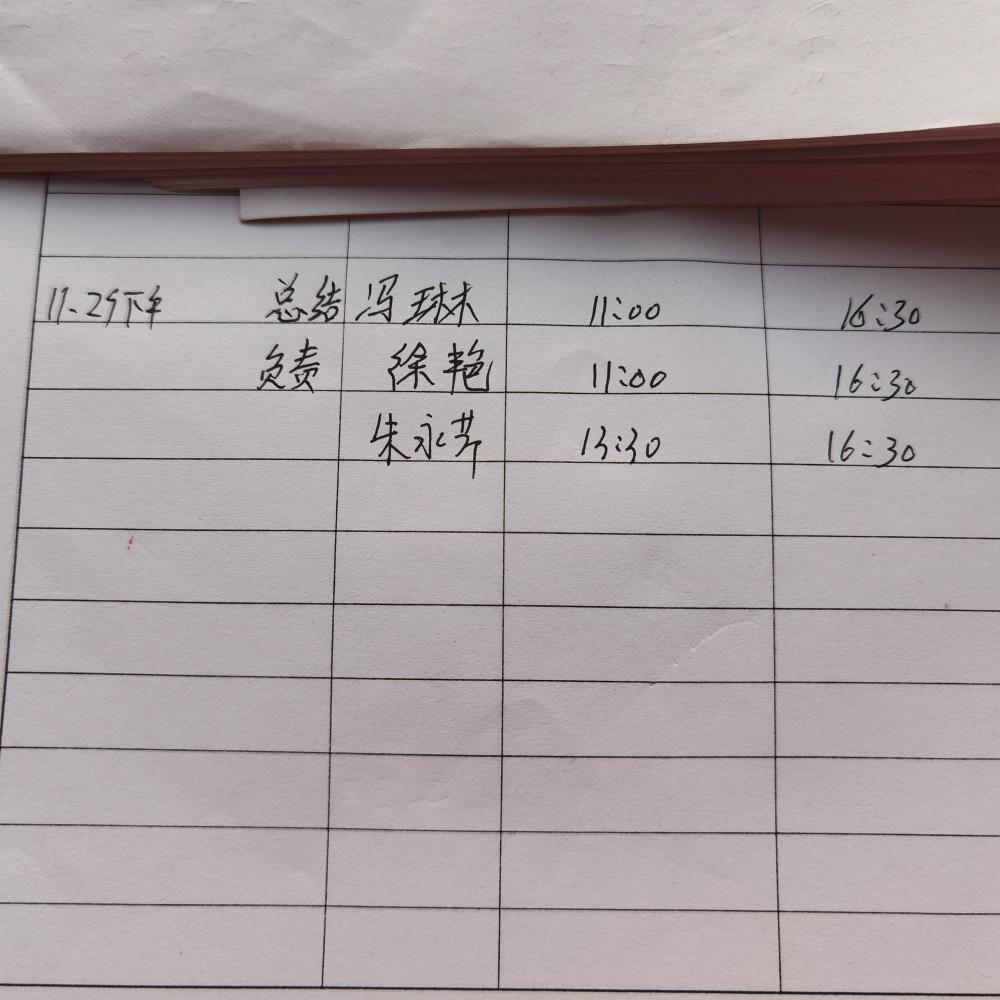 11.29下午 总结 冯琳 11:00 16:30
负责 徐艳 11:00 16:30
朱永芹 13:30 16:30